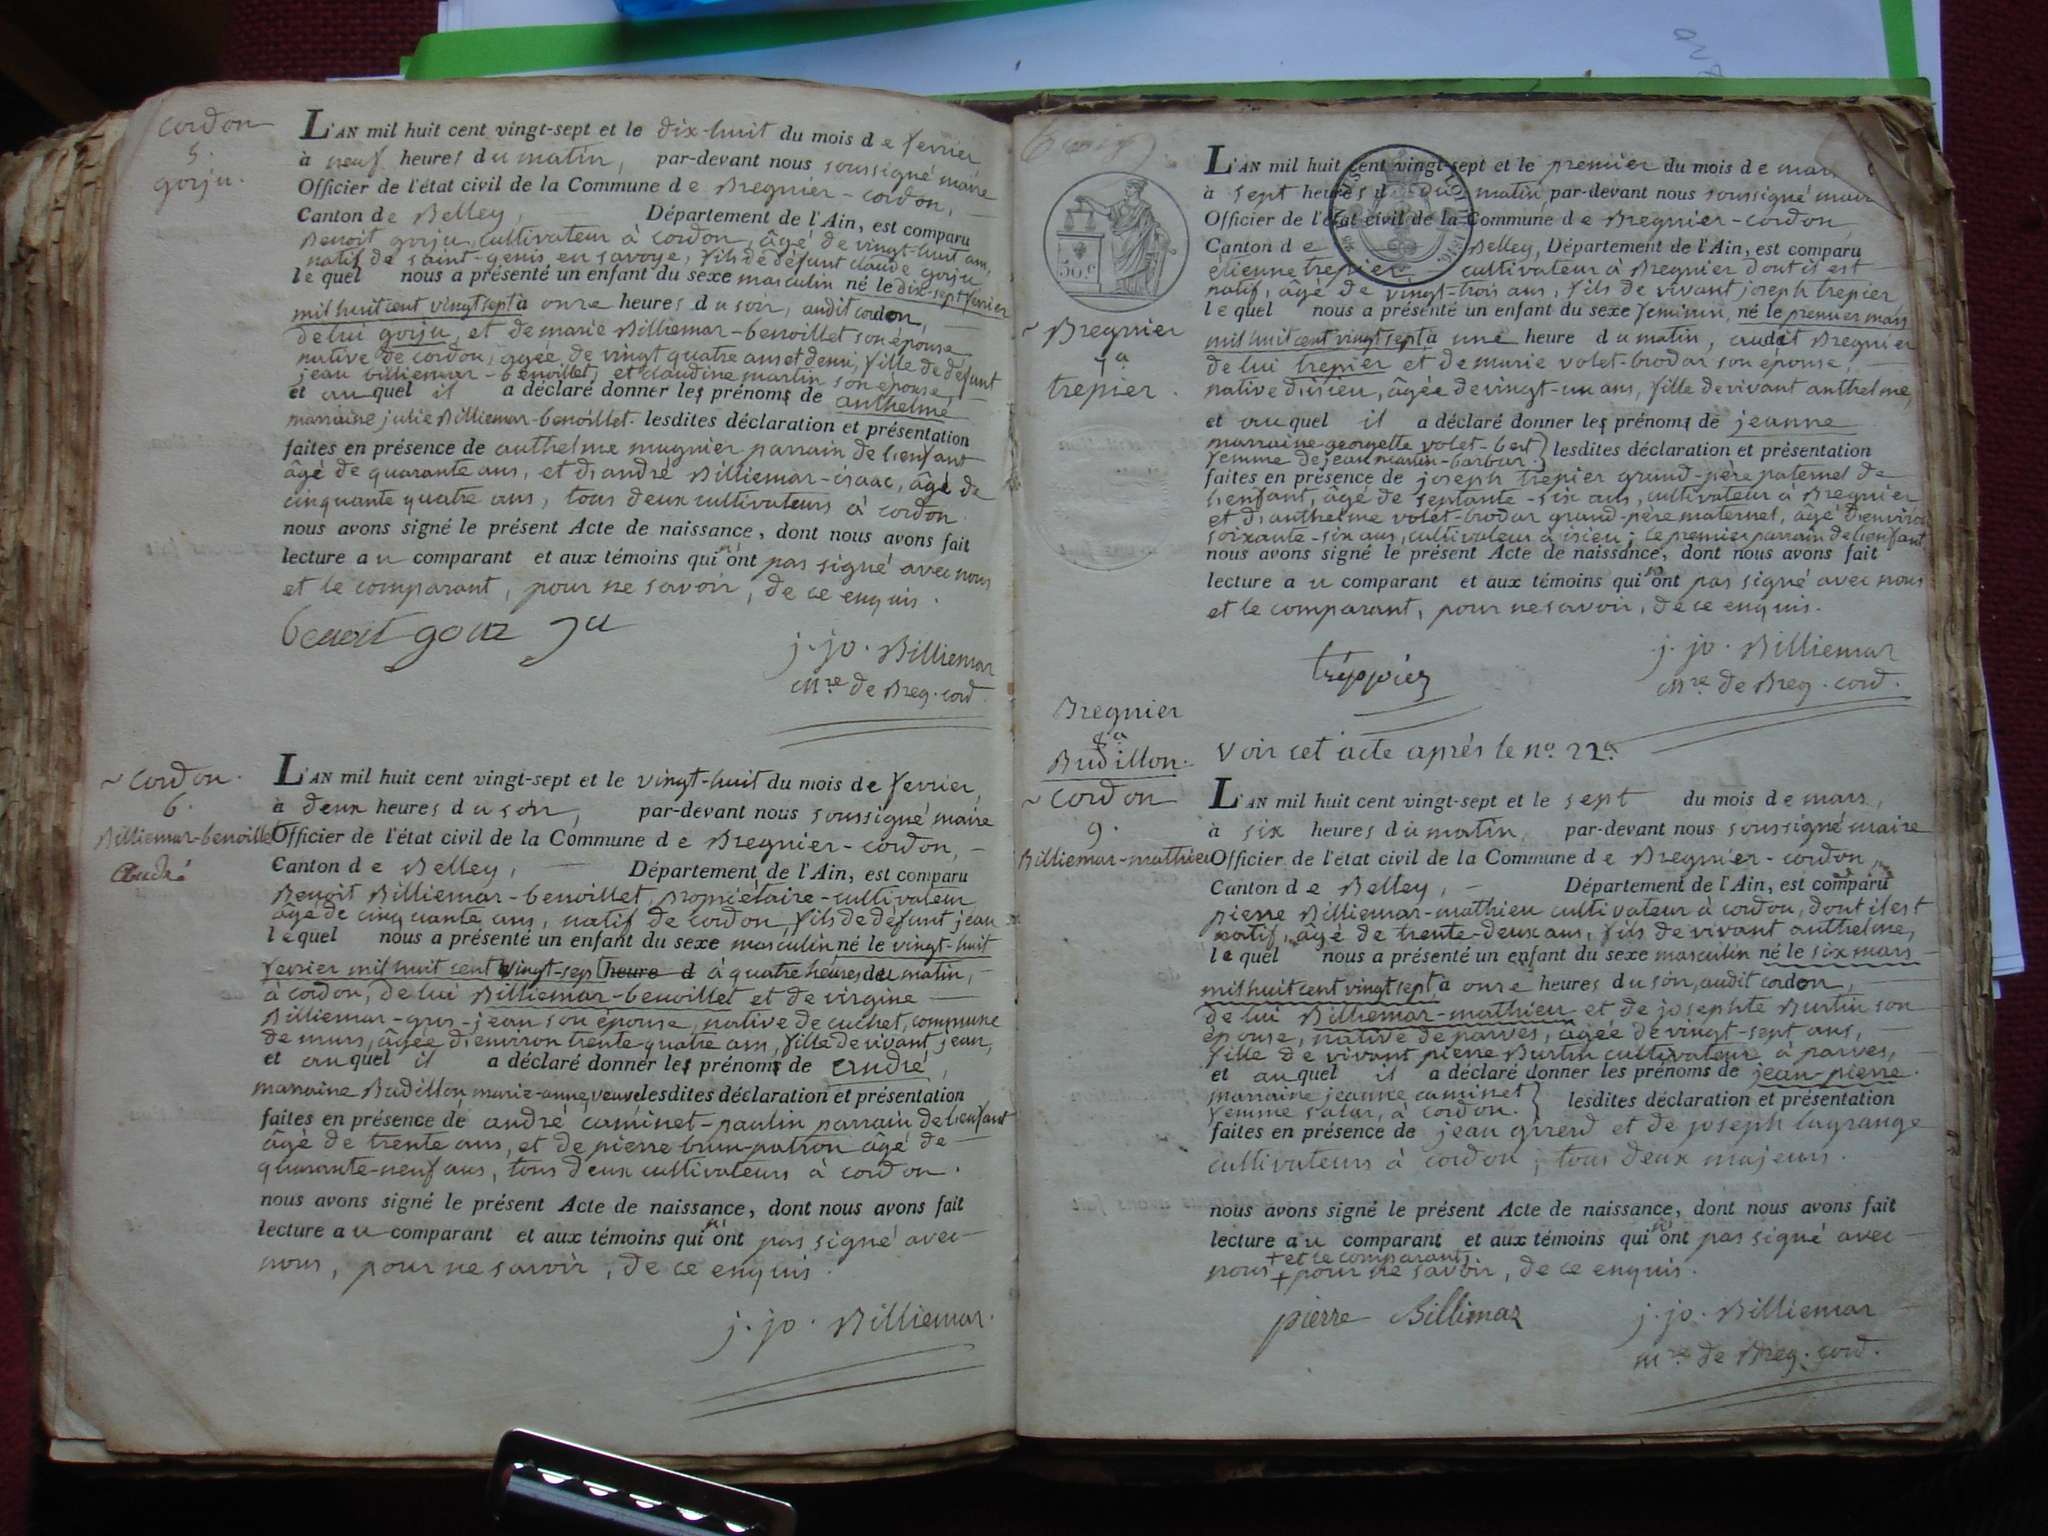 cordon
5.
gorju.
L'AN mil huit cent vingt-sept et le dix-huit du mois de fevrier
à neuf heures du matin, par-devant nous soussigné maire
Officier de l'état civil de la Commune de Bregnier-cordon,
Canton de Belley, Département de l'Ain, est comparu
Benoit gorju, cultivateur à cordon, âgé de vingt-huit ans,
natif de saint-genis en savoye, fils de défunt claude gorju
lequel nous a présenté un enfant du sexe masculin né le dix-sept fevrier
mil huit cent vingt sept à onze heures du soir, audit cordon,
de lui gorju, et de marie Billiemar-benoillet son épouse
native de cordon, âgée de vingt quatre ans et demi, fille de défunt
jean billiemar-benoillet, et claudine martin son épouse,
et auquel il a déclaré donner les prénoms de anthelme
marraine julie Billiemar-benoillet. lesdites déclaration et présentation
faites en présence de anthelme mugnier parrain de l'enfant
âgé de quarante ans, et d'andré Billiemar-isaac, âgé de
cinquante quatre ans, tous deux cultivateurs à cordon.
nous avons signé le présent Acte de naissance, dont nous avons fait
lecture au comparant et aux témoins qui n'ont pas signé avec nous
et le comparant, pour ne savoir, de ce enquis.
benoit gouz ju
j. jo. Billiemar
mre de Breg. cord.
~ cordon.
6.
Billiemar-benoillet
André
L'AN mil huit cent vingt-sept et le vingt-huit du mois de fevrier,
à deux heures du soir, par-devant nous soussigné maire
Officier de l'état civil de la Commune de Bregnier-cordon,
Canton de Belley, Département de l'Ain, est comparu
Benoit Billiemar-benoillet, propriétaire-cultivateur
âgé de cinquante ans, natif de cordon, fils de défunt jean
lequel nous a présenté un enfant du sexe masculin né le vingt-huit
fevrier mil huit cent vingt-sep heure d à quatre heures du matin,
à cordon, de lui Billiemar-benoillet et de virgine
Billiemar-gros-jean son épouse, native de cuchet, commune
de murs, âgée d'environ trente-quatre ans, fille de vivant jean,
et auquel il a déclaré donner les prénoms de André,
marraine Budillon marie-anne, veuve lesdites déclaration et présentation
faites en présence de andré caminet-paulin parrain de l'enfant
âgé de trente ans, et de pierre brun-patron âgé de
quarante-neuf ans, tous deux cultivateurs à cordon.
nous avons signé le présent Acte de naissance, dont nous avons fait
lecture au comparant et aux témoins qui n'ont pas signé avec
nous, pour ne savoir, de ce enquis.
j. jo. Billiemar.
50 c.
~ Bregnier
7a
trepier.
L'AN mil huit cent vingt-sept et le premier du mois de mars
à sept heures du matin par-devant nous soussigné maire
Officier de l'état civil de la Commune de Bregnier-cordon,
Canton de Belley, Département de l'Ain, est comparu
etienne trepier cultivateur à Bregnier dont il est
natif, âgé de vingt-trois ans, fils de vivant joseph trepier
lequel nous a présenté un enfant du sexe feminin, né le premier mars
mil huit cent vingt sept à une heure du matin, audit Bregnier
de lui trepier et de marie volet-brodar son épouse,
native d'isieu, âgée de vingt-un ans, fille de vivant anthelme,
et auquel il a déclaré donner les prénoms de jeanne
marraine georgette volet-bert
femme de jean martin-barbar. } lesdites déclaration et présentation
faites en présence de joseph trepier grand-père paternel de
l'enfant, âgé de septante-six ans, cultivateur à Bregnier
et d'anthelme volet-brodar grand-père maternel, âgé d'environ
soixante-six ans, cultivateur à isieu; ce premier parrain de l'enfant
nous avons signé le présent Acte de naissance, dont nous avons fait
lecture au comparant et aux témoins qui n'ont pas signé avec nous
et le comparant, pour ne savoir, de ce enquis.
tréppiez
j. jo. Billiemar
mre de Breg. cord.
Bregnier
8a
Budillon.
Voir cet acte après le no. 22a
~ cordon
9.
Billiemar-mathieu
L'AN mil huit cent vingt-sept et le sept du mois de mars,
à six heures du matin, par-devant nous soussigné maire
Officier de l'état civil de la Commune de Bregnier-cordon,
Canton de Belley, Département de l'Ain, est comparu
pierre Billiemar-mathieu cultivateur à cordon, dont il est
natif, âgé de trente-deux ans, fils de vivant anthelme,
lequel nous a présenté un enfant du sexe masculin né le six mars
mil huit cent vingt sept à onze heures du soir, audit cordon,
de lui Billiemar-mathieu et de josephte Burtin son
épouse, native de parves, âgée de vingt-sept ans,
fille de vivant pierre Burtin cultivateur à parves,
et auquel il a déclaré donner les prénoms de jean-pierre.
marraine jeanne caminet
femme salar, à cordon. } lesdites déclaration et présentation
faites en présence de jean girerd et de joseph lagrange
cultivateurs à cordon, tous deux majeurs.
nous avons signé le présent Acte de naissance, dont nous avons fait
lecture au comparant et aux témoins qui n'ont pas signé avec
+ et le comparant,
nous + pour ne savoir, de ce enquis.
pierre Billimaz
j. jo. Billiemar
mre de Breg. cord.